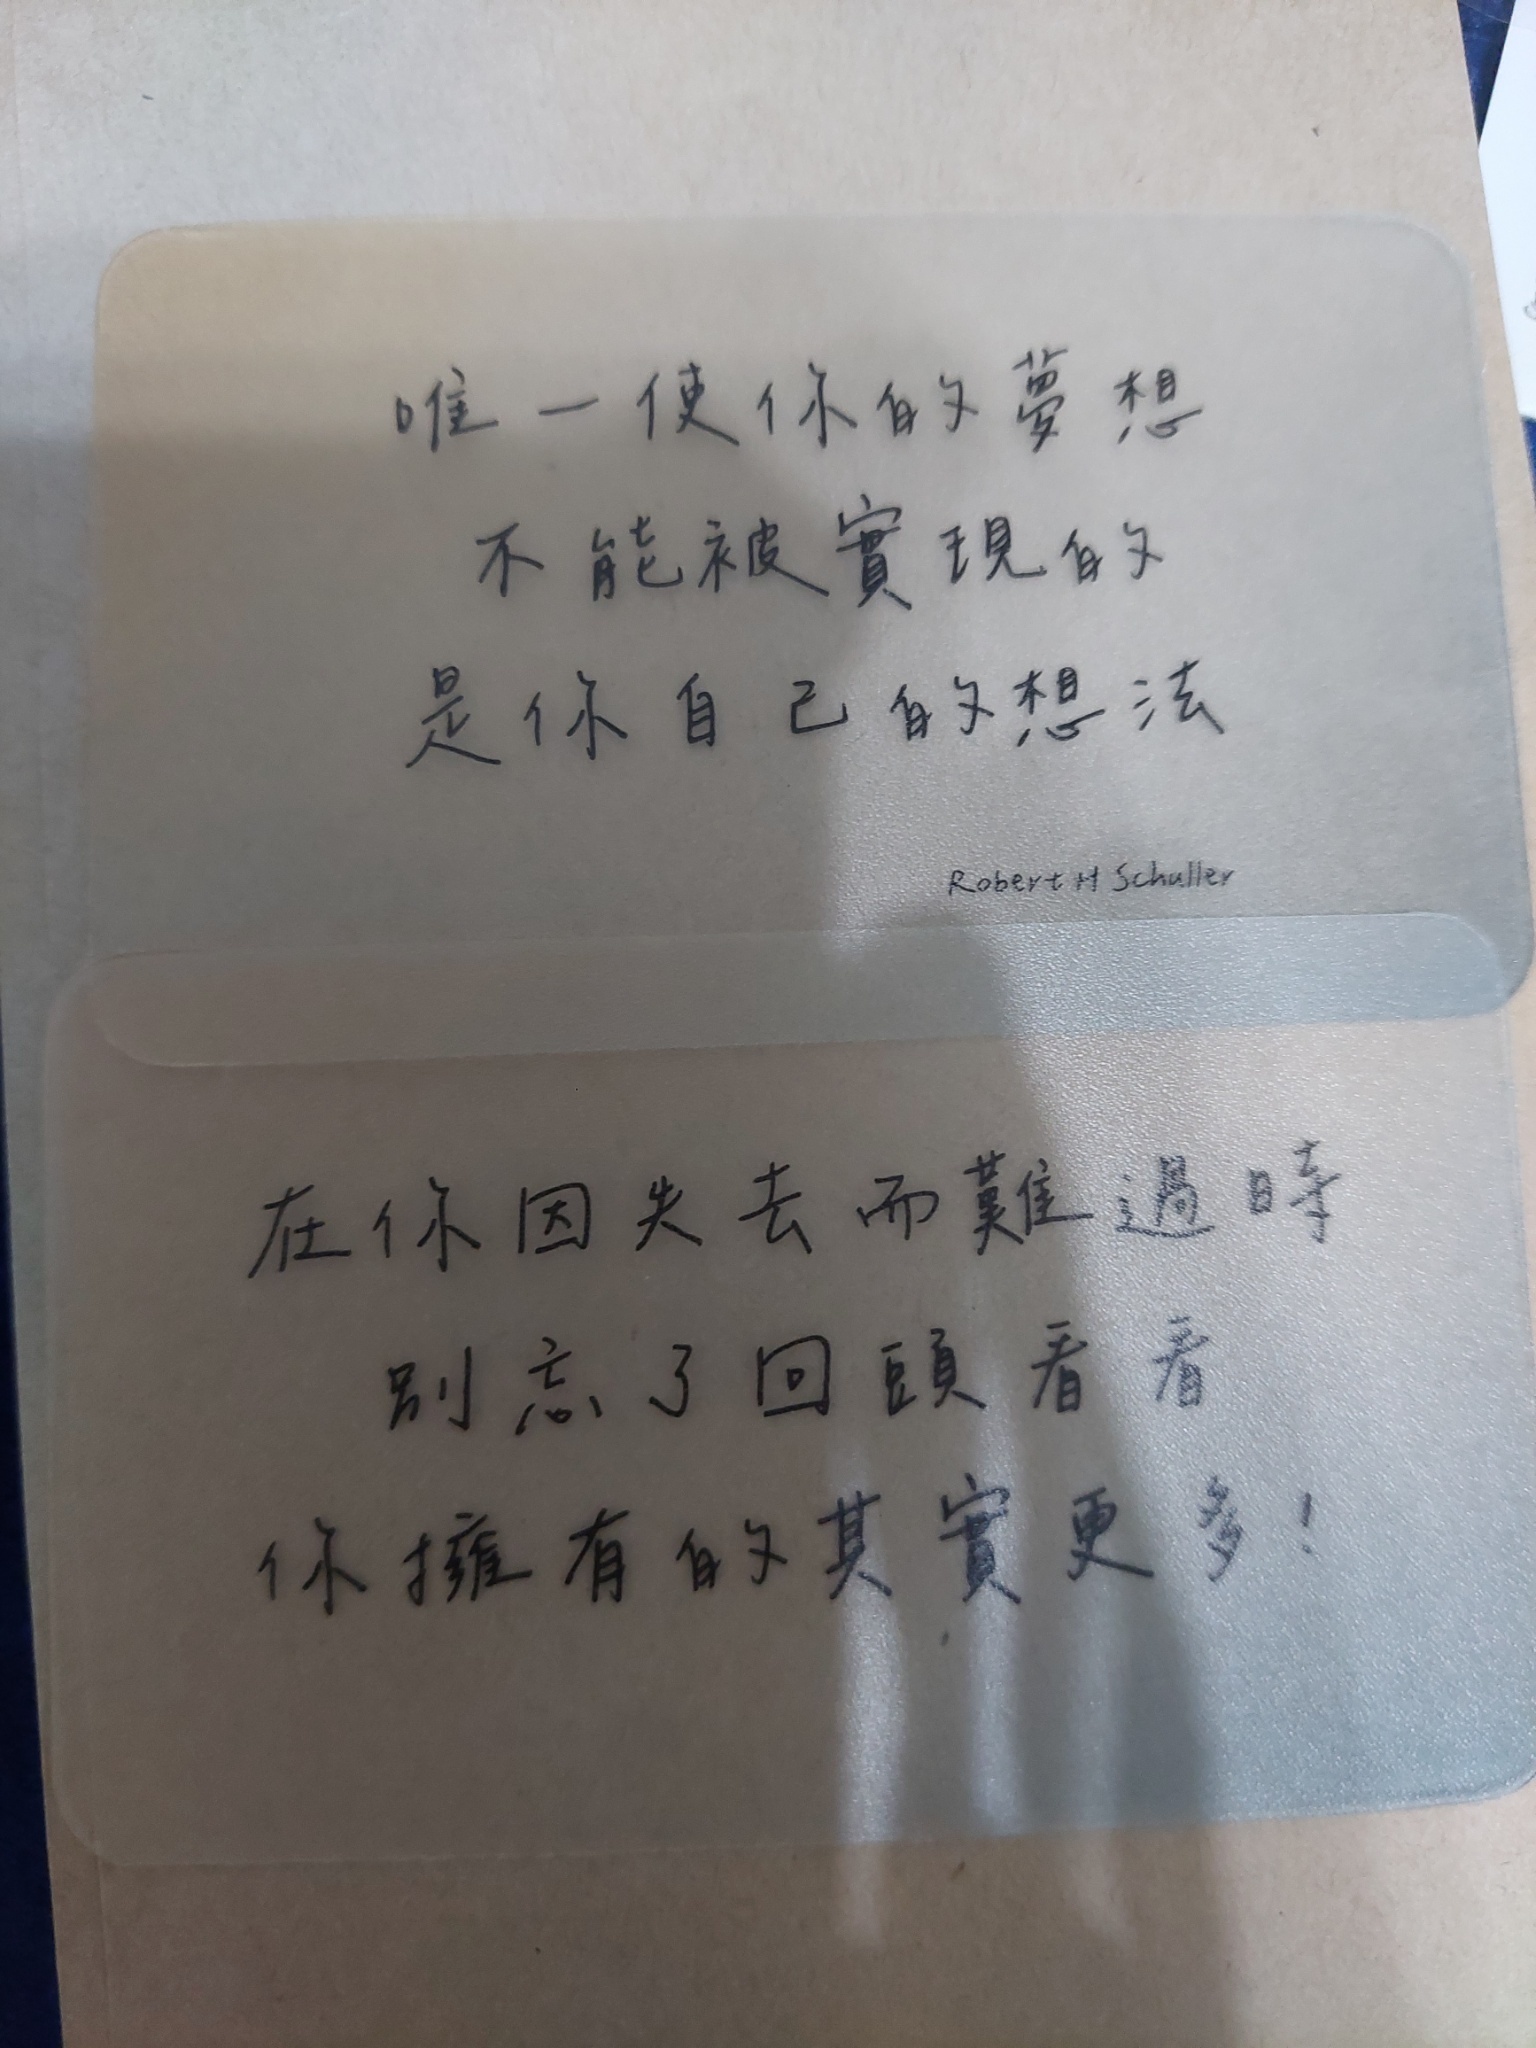 唯一使你的夢想
不能被實現的
是你自己的想法
Robert H Schuller
在你因失去而難過時
別忘了回頭看看
你擁有的其實更多!